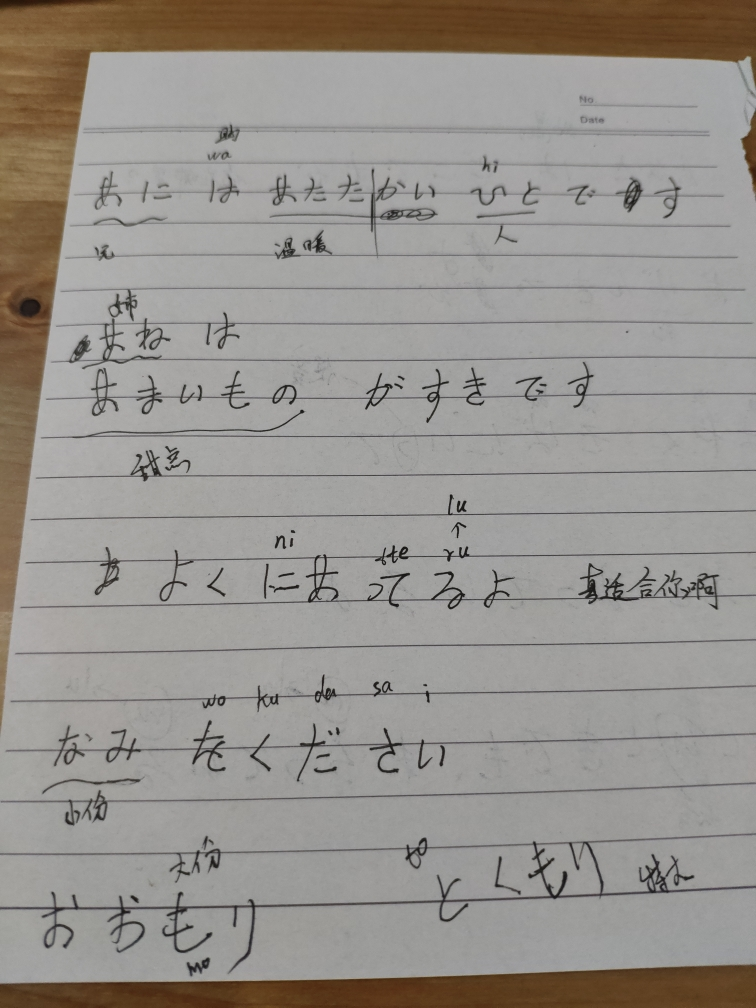 No
Date
助
wa
hi
あに は あたたかい ひとです
兄 温暖 人
姉
あねは
あまいもの がすきです
甜点
lu
↑
ni tte ru
よくにあってるよ 真适合你啊
wo ku da sa i
なみ をください
小份
大份
おおもり とくもり 特大
mo